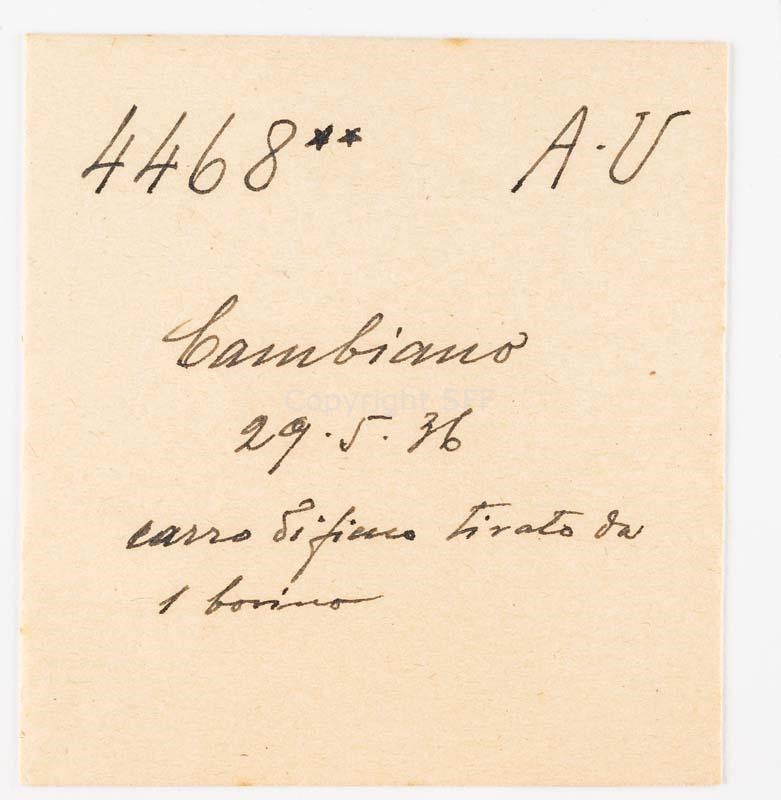 4468** A·U
Cambiano
Copyright SFF
29·5·36
carro di fieno tirato da
1 bovino